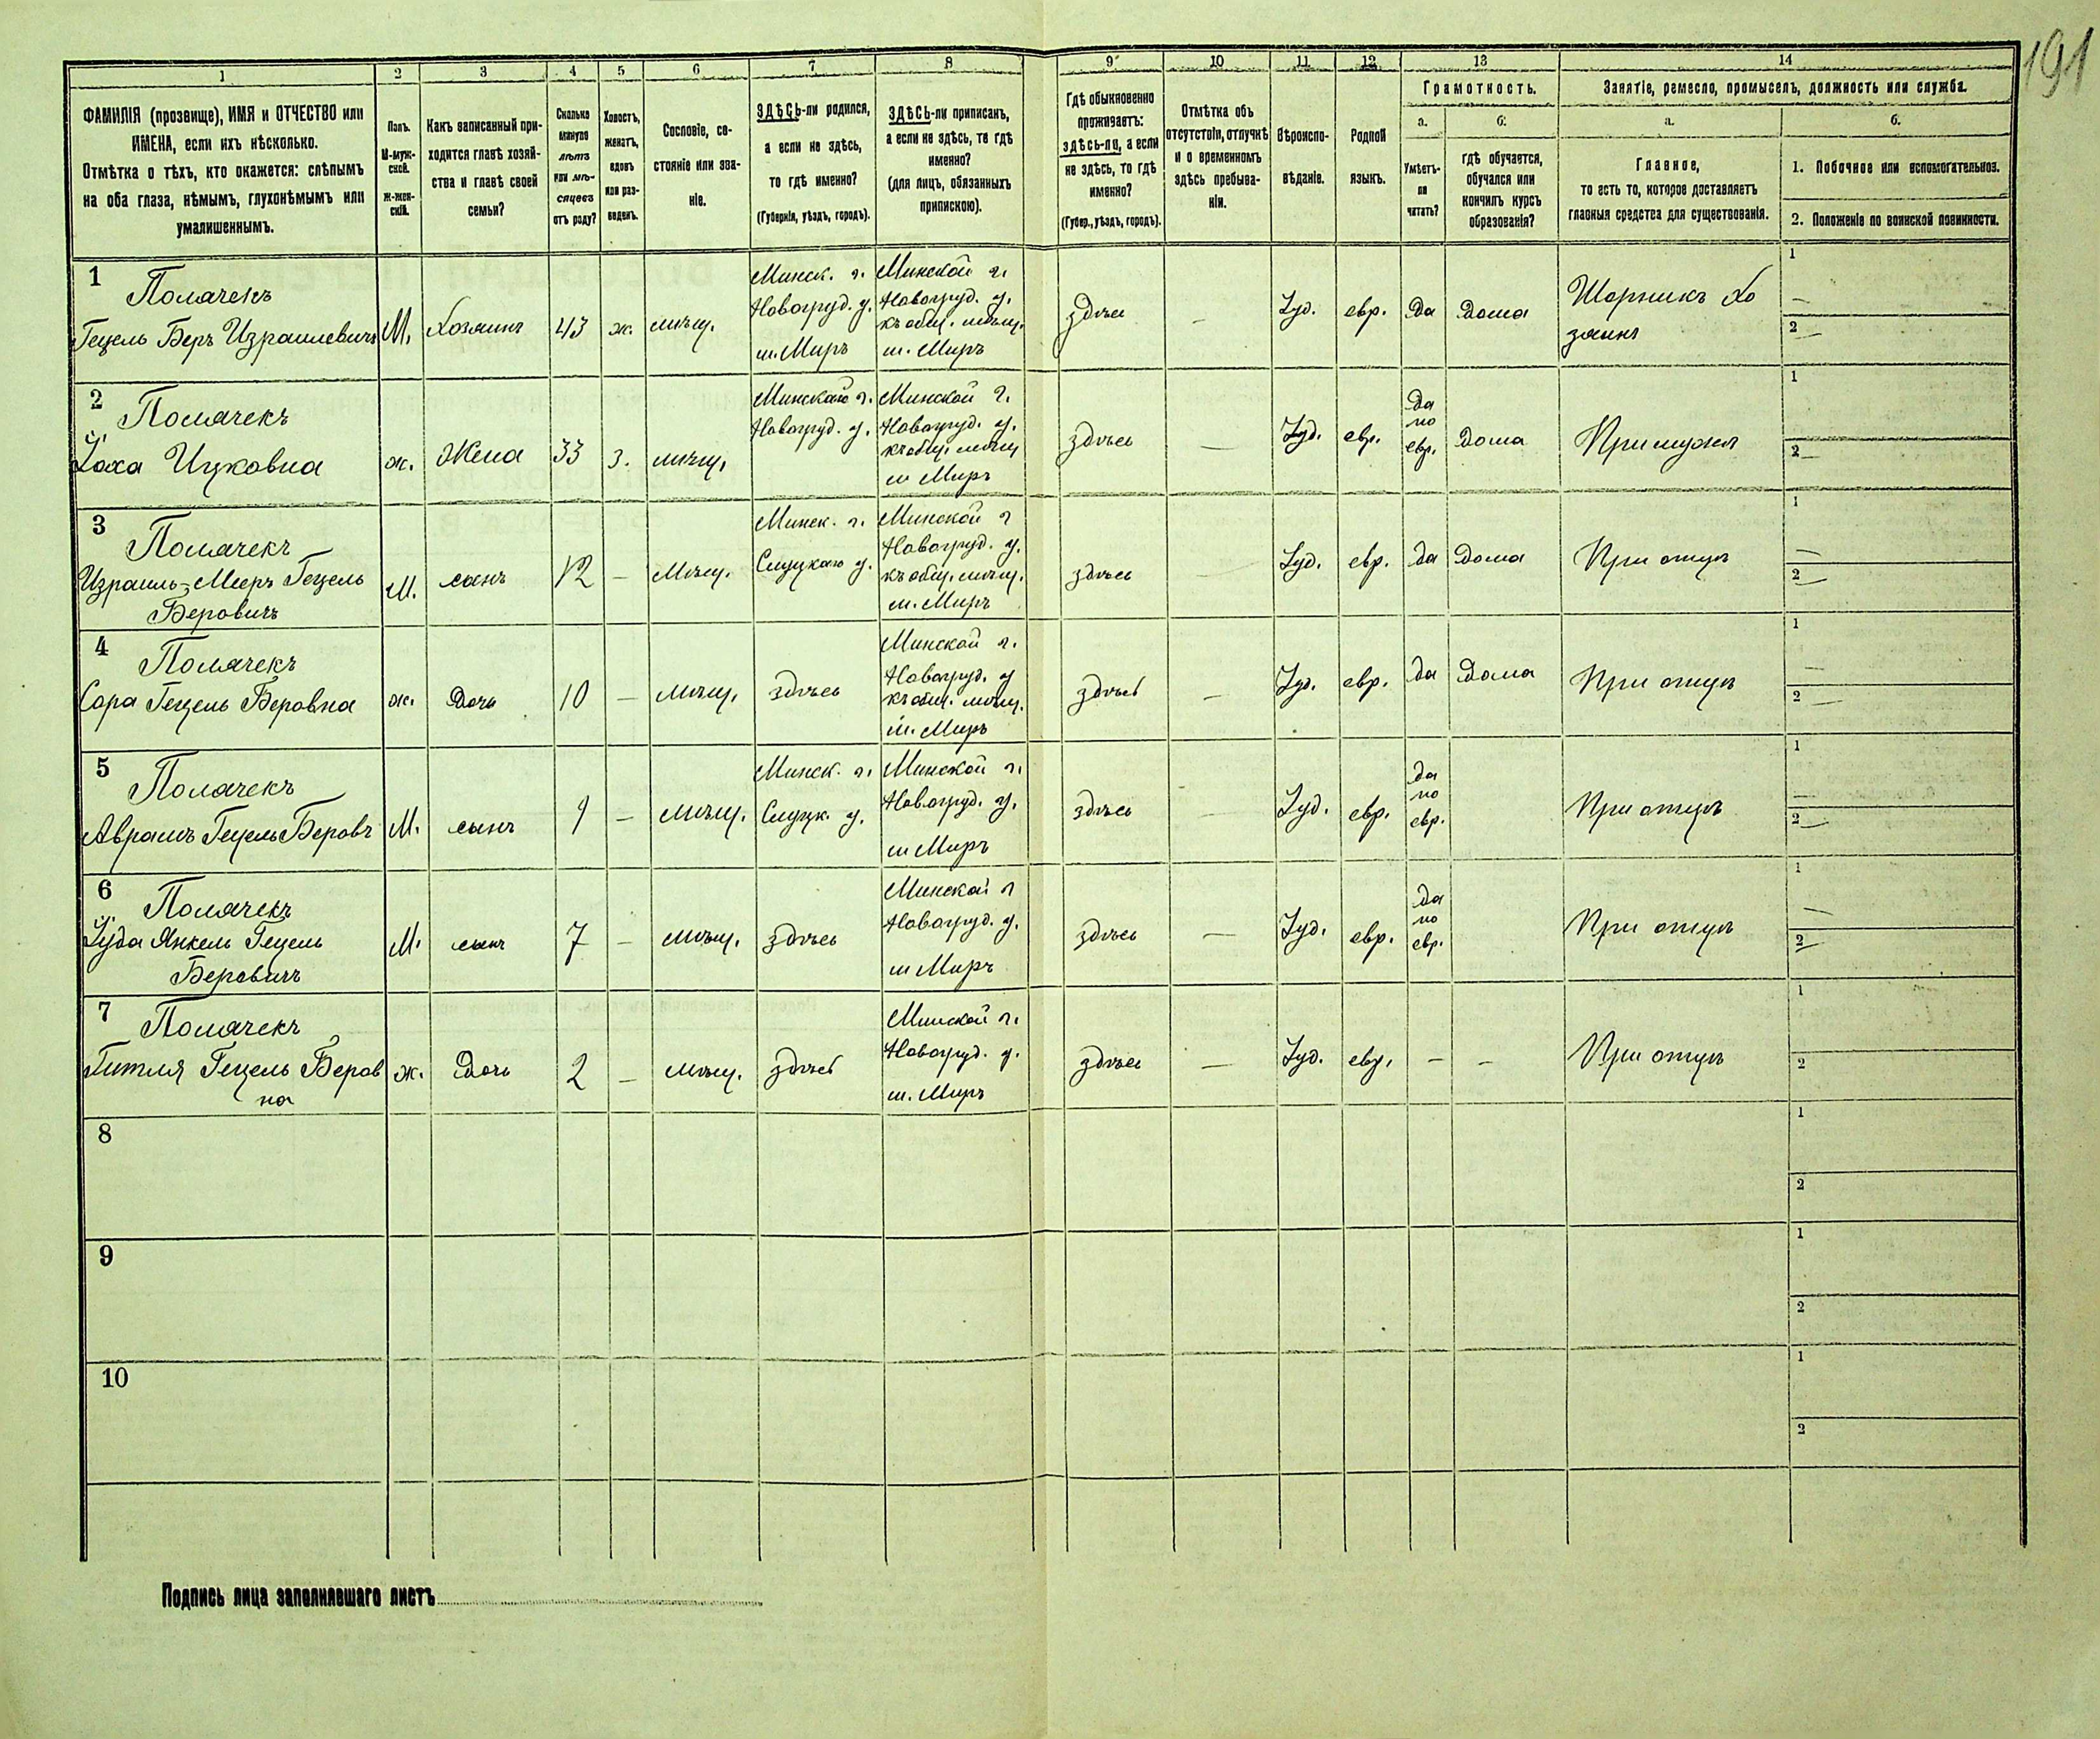 191
1 2 3 4 5 6 7 8 9 10 11 12 13 14
ФАМИЛІЯ (прозвище), ИМЯ и ОТЧЕСТВО или
ИМЕНА, если ихъ нѣсколько.
Отмѣтка о тѣхъ, кто окажется: слѣпымъ
на оба глаза, нѣмымъ, глухонѣмымъ или
умалишеннымъ.
Полъ.
М-муж-
ской.
Ж-жен-
скій.
Какъ записанный при-
ходится главѣ хозяй-
ства и главѣ своей
семьи?
Сколько
минуло
лѣтъ
или мѣ-
сяцевъ
отъ роду?
Холостъ,
женатъ,
вдовъ
или раз-
веденъ.
Сословіе, со-
стояніе или зва-
ніе.
ЗДѢСЬ-ли родился,
а если не здѣсь,
то гдѣ именно?
(Губернія, уѣздъ, городъ).
ЗДѢСЬ-ли приписанъ,
а если не здѣсь, то гдѣ
именно?
(для лицъ, обязанныхъ
припискою).
Гдѣ обыкновенно
проживаетъ:
здѣсь-ли, а если
не здѣсь, то гдѣ
именно?
(Губер., уѣздъ, городъ).
Отмѣтка объ
отсутствіи, отлучкѣ
и о временномъ
здѣсь пребыва-
ніи.
Вѣроиспо-
вѣданіе.
Родной
языкъ.
Грамотность.
а.
Умѣетъ-
ли
читать?
б.
гдѣ обучается,
обучался или
кончилъ курсъ
образованія?
Занятіе, ремесло, промыселъ, должность или служба.
а.
Главное,
то есть то, которое доставляетъ
главныя средства для существованія.
б.
1. Побочное или вспомогательное.
2. Положеніе по воинской повинности.
1
Полячекъ
Гецель Беръ Израилевичъ
М.
Хозяинъ
43
ж.
мѣщ.
Минск. г.
Новогруд. у.
м. Миръ
Минской г.
Новогруд. у.
къ общ. мѣщ.
м. Миръ
здѣсь
—
Іуд.
евр.
да
Дома
Шорникъ Хо
зяинъ
1
—
2 —
2
Полячекъ
Хаха Ицковна
ж.
Жена
33
з.
мѣщ.
Минскаго г.
Новогруд. у.
Минской г.
Новогруд. у.
къ общ. мѣщ
м Миръ
здѣсь
—
Іуд.
евр.
да
по
евр.
Дома
При мужѣ
1
2 —
3
Полячекъ
Израиль-Мееръ Гецель
Беровичъ
М.
сынъ
12
—
Мѣщ.
Минск. г.
Слуцкаго у.
Минской г
Новогруд. у.
къ общ. мѣщ.
м. Миръ
здѣсь
—
Іуд.
евр.
да
Дома
При отцѣ
1
—
2 —
4
Полячекъ
Сора Гецель Беровна
ж.
Дочь
10
—
мѣщ.
здѣсь
Минской г.
Новогруд. у
къ общ. мѣщ.
м. Миръ
здѣсь
—
Іуд.
евр.
да
Дома
При отцѣ
1
—
2 —
5
Полячекъ
Абрамъ Гецель Беровъ
М.
сынъ
9
—
мѣщ.
Минск. г.
Слуцк. у.
Минской г.
Новогруд. у.
м Миръ
здѣсь
—
Іуд.
евр.
да
по
евр.
При отцѣ
1
—
2 —
6
Полячекъ
Іуда Янкель Гецель
Беровичъ
М.
сынъ
7
—
мѣщ.
здѣсь
Минской г
Новогруд. у.
м Миръ
здѣсь
—
Іуд.
евр.
да
по
евр.
При отцѣ
1
—
2 —
7
Полячекъ
Гитля Гецель Беров
на
ж.
Дочь
2
—
мѣщ.
здѣсь
Минской г.
Новогруд. у.
м. Миръ
здѣсь
—
Іуд.
евр.
—
—
При отцѣ
1
2
8
1
2
9
1
2
10
1
2
Подпись лица заполнявшаго листъ